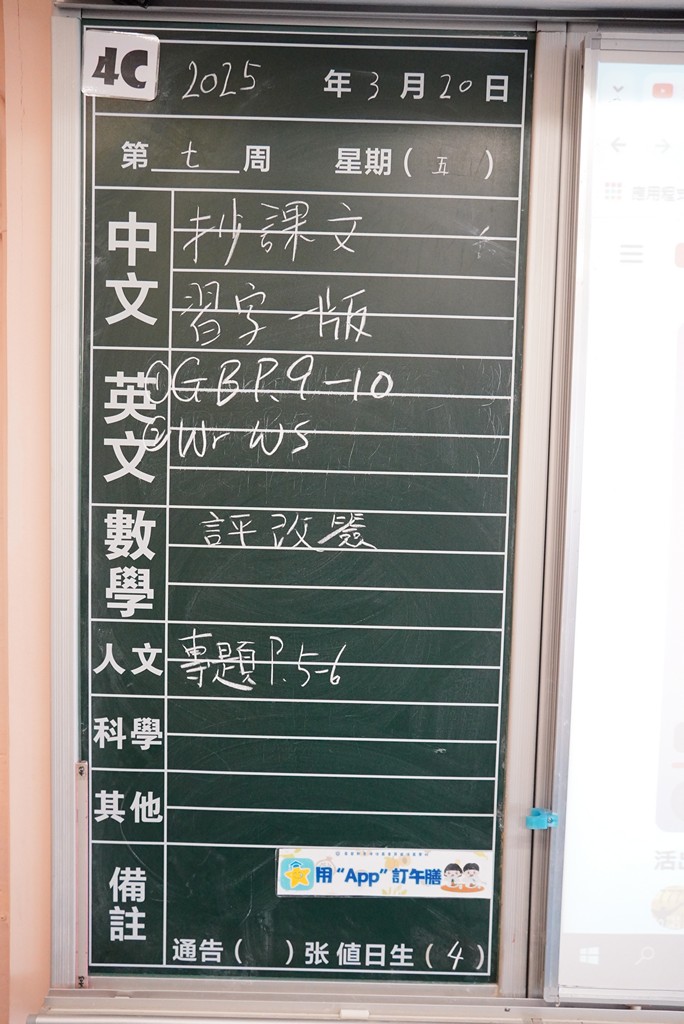 4C
2025 年 3 月 20 日
第 七 周 星期( 五 )
中文
抄課文
習字一版
英文
①GB P.9-10
②Wr WS
數學
評改簽
人文
專題 P.5-6
科學
其他
備註
用“App”訂午膳
通告( )张 值日生( 4 )
活